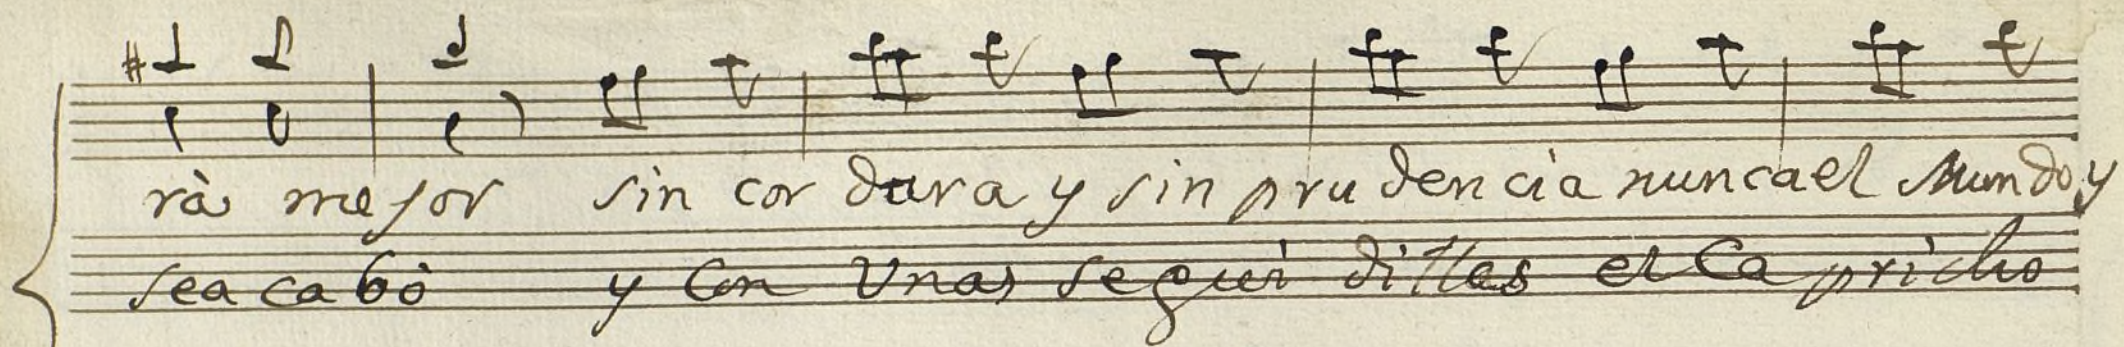 rà mejor sin cor dura y sin pru dencia nunca el Mundo y
sea ca bó y con Unas segui dillas el Ca pricho